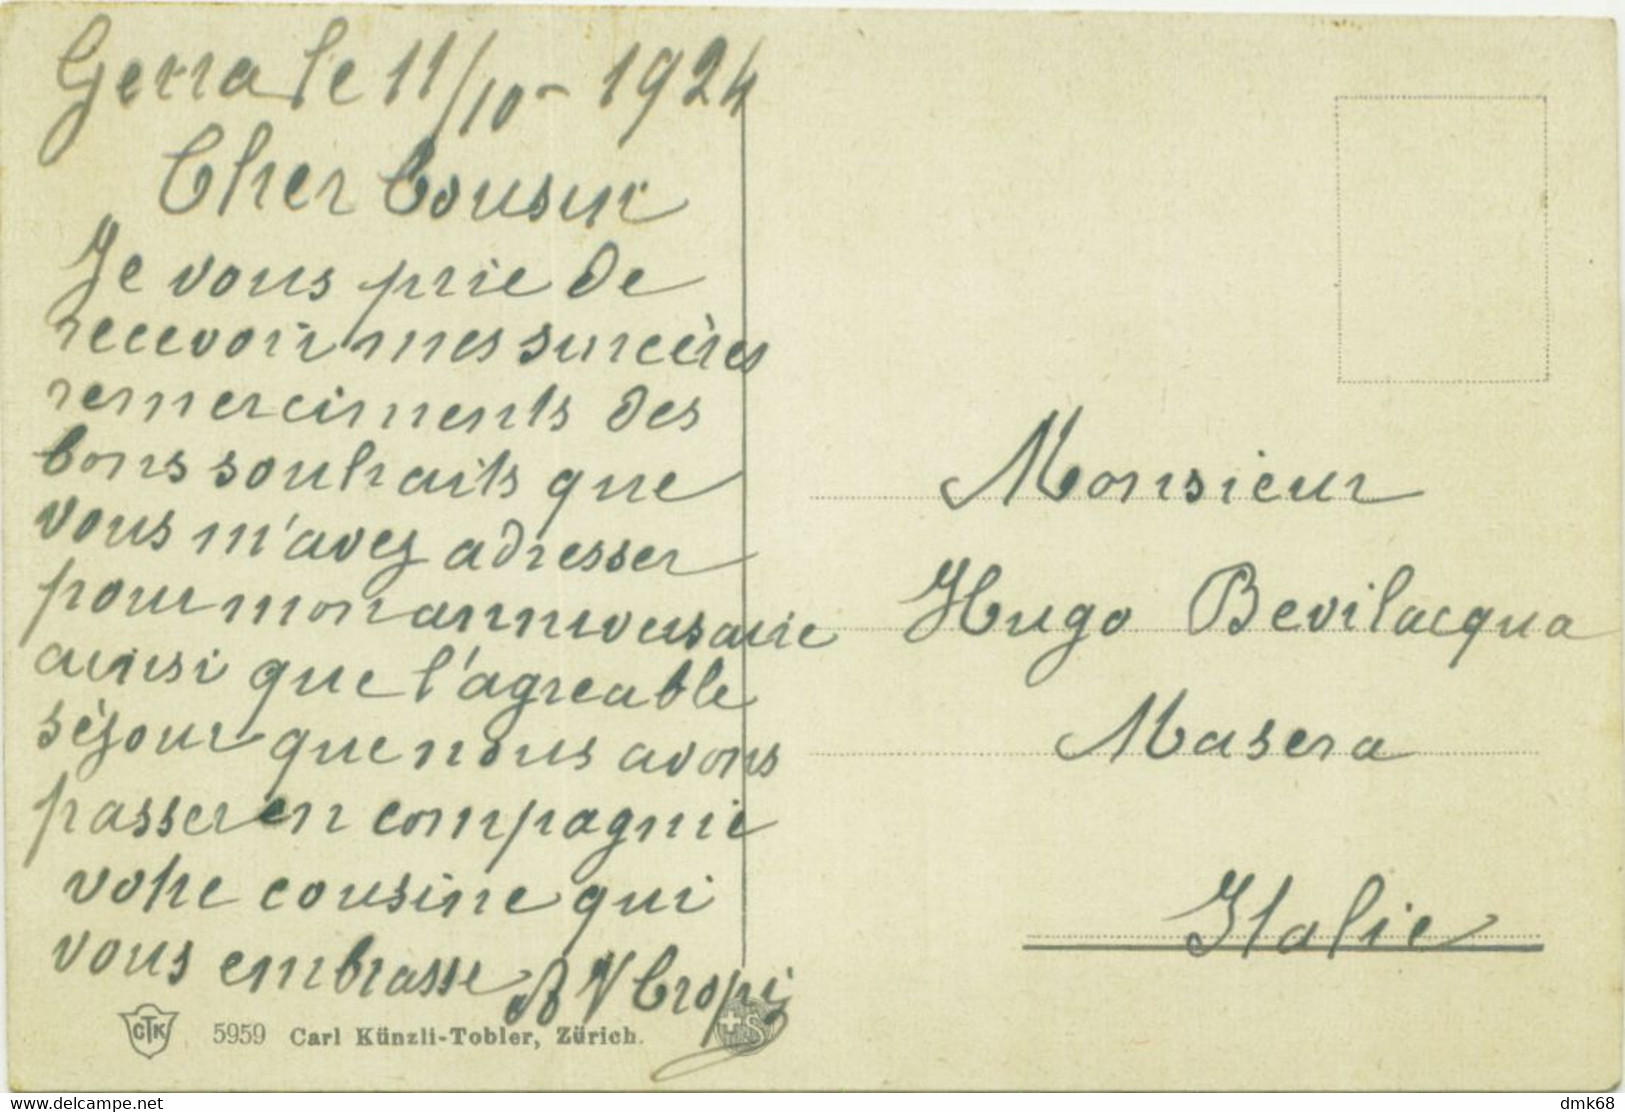 Gerra le 11/10 - 1924
Cher Cousin
Je vous prie de
recevoir mes sincères
remerciments des
bons souhaits que
vous m'avez adresser
pour mon anniversaire
ainsi que l'agreable
séjour que nous avons
passer en compagnie
votre cousine qui
vous embrasse
CTK 5959 Carl Künzli-Tobler, Zürich.
Monsieur
Hugo Bevilacqua
Masera
Italie
delcampe.net
dmk68